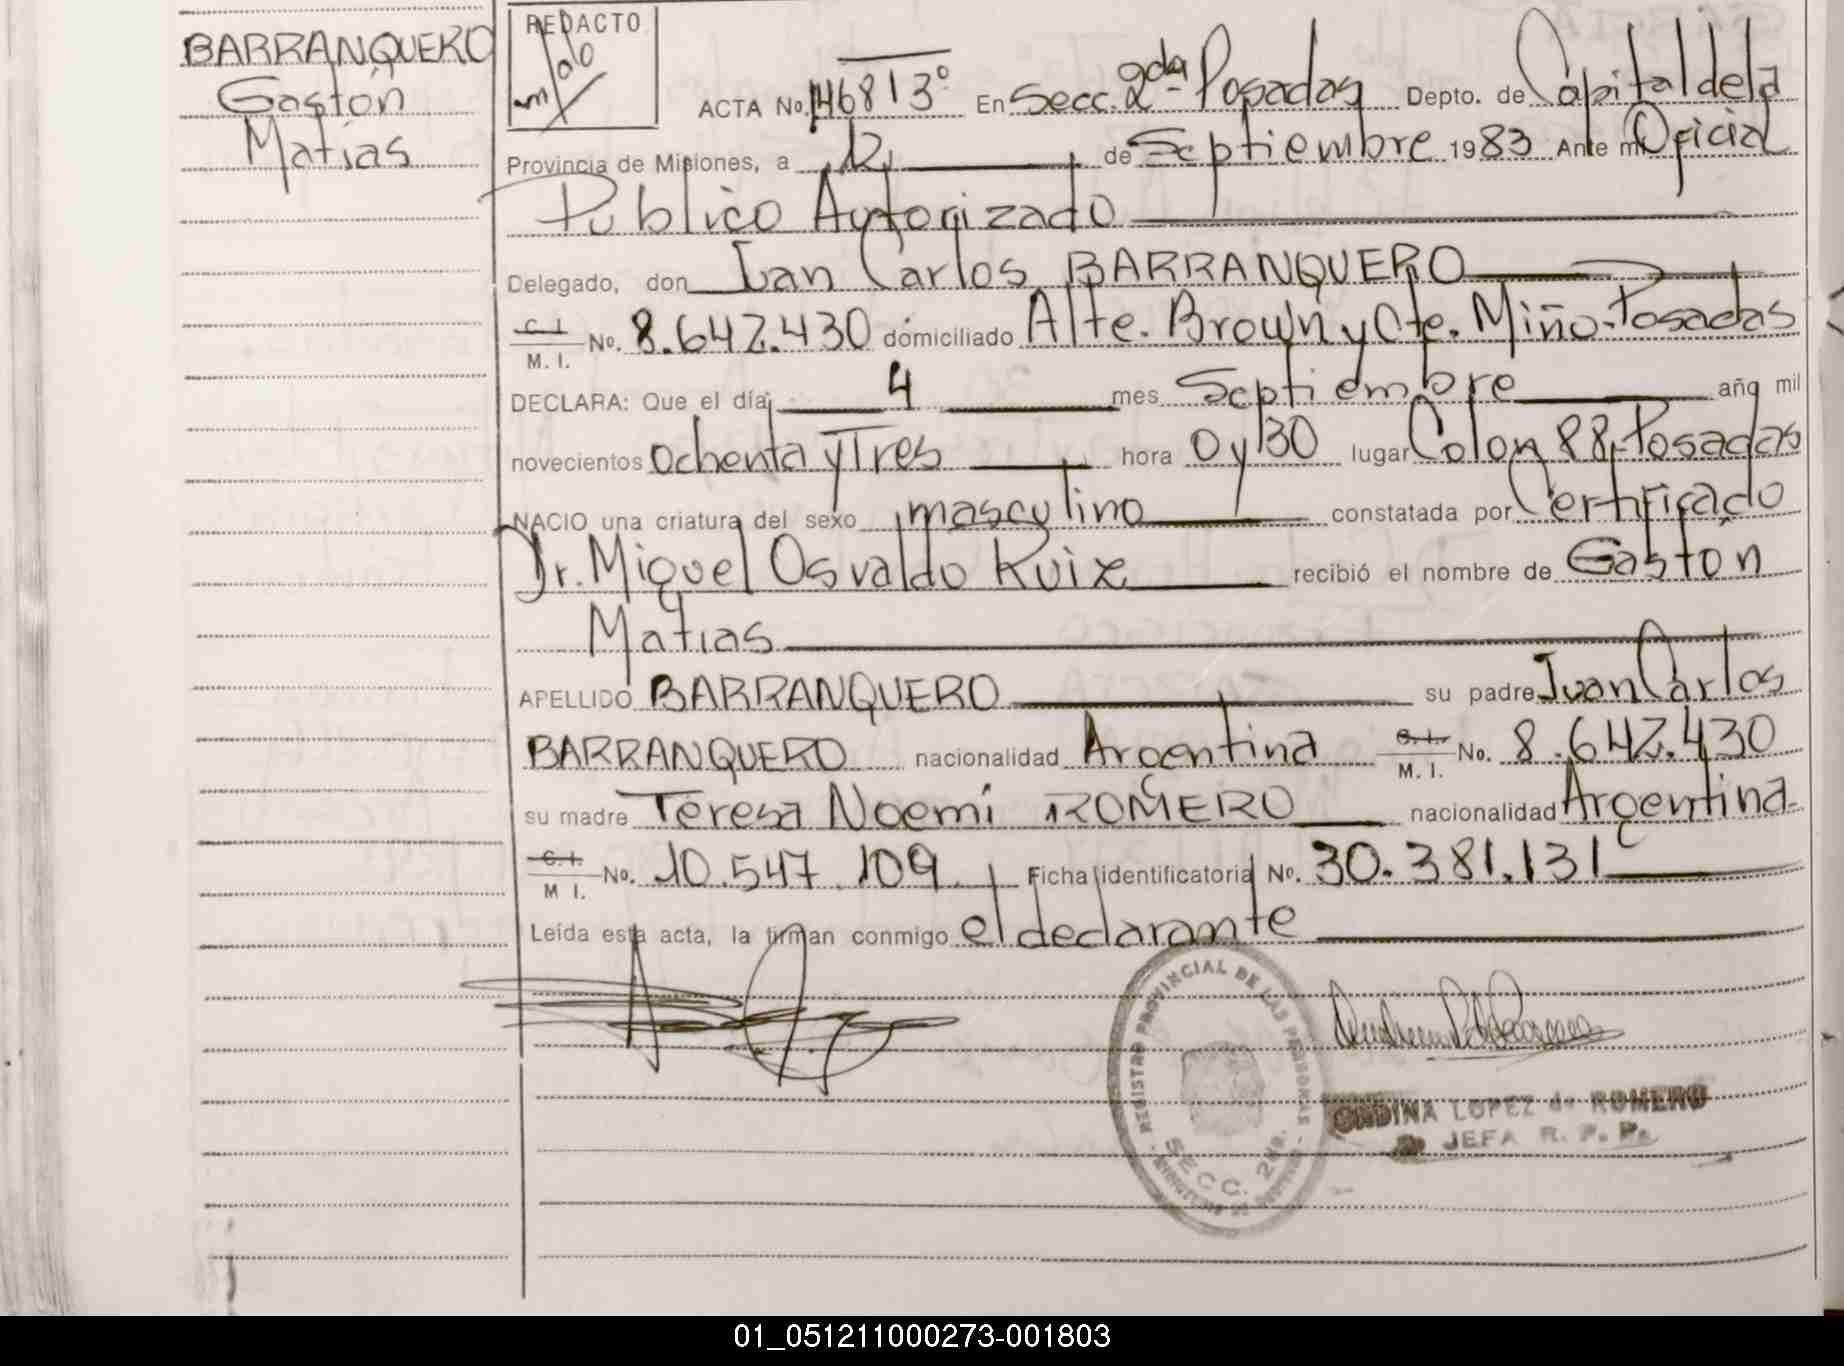 BARRANQUERO
Gastón
Matías
REDACTO
ACTA No. 1468 13º En Secc. 2da Posadas Depto. de Capital de la
Provincia de Misiones, a 12 de Septiembre 1983 Ante mi Oficial
Publico Autorizado
Delegado, don Juan Carlos BARRANQUERO
C. I.
M. I. No. 8.642.430 domiciliado Alte. Brown y Cte. Miño-Posadas
DECLARA: Que el día 4 mes Septiembre año mil
novecientos ochenta y Tres hora 0 y 30 lugar Colon 88, Posadas
NACIO una criatura del sexo masculino constatada por Certificado
Dr. Miguel Osvaldo Ruix recibió el nombre de Gastón
Matias
APELLIDO BARRANQUERO su padre Juan Carlos
BARRANQUERO nacionalidad Argentina C. I. M. I. No. 8.642.430
su madre Teresa Noemí ROMERO nacionalidad Argentina
C. I. M I. No. 10.547.109 Ficha identificatoria No. 30.381.131
Leída esta acta, la firman conmigo el declarante
REGISTRO PROVINCIAL DE LAS PERSONAS
SECC. 2da.
ONDINA LOPEZ de ROMERO
JEFA R. P. Ps.
01_051211000273-001803